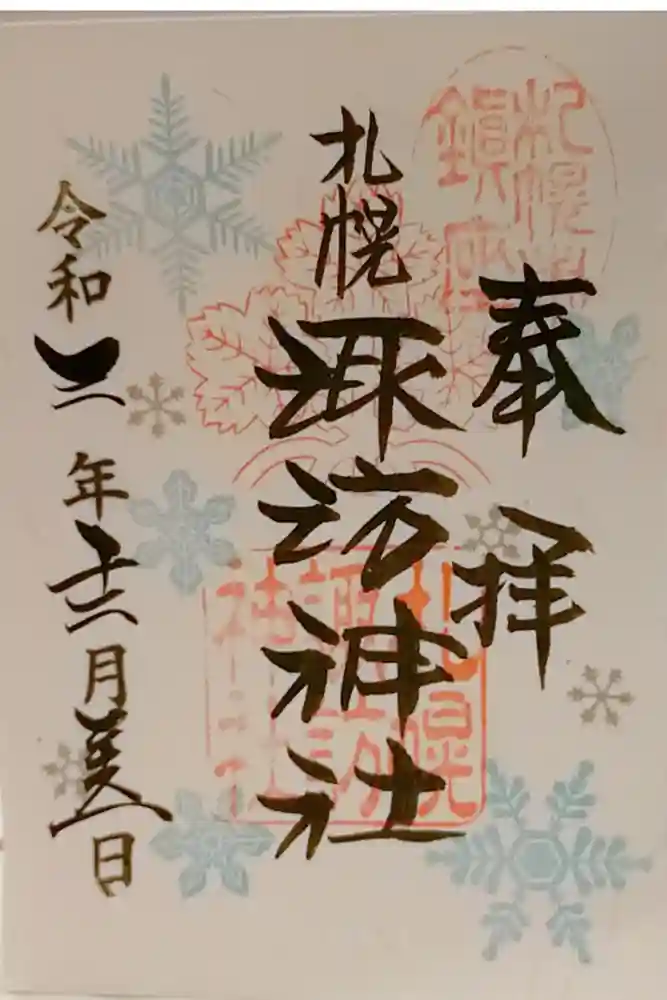 奉拝
札幌鎮座
札幌
諏訪神社
札幌諏訪神社
令和二年十二月 日